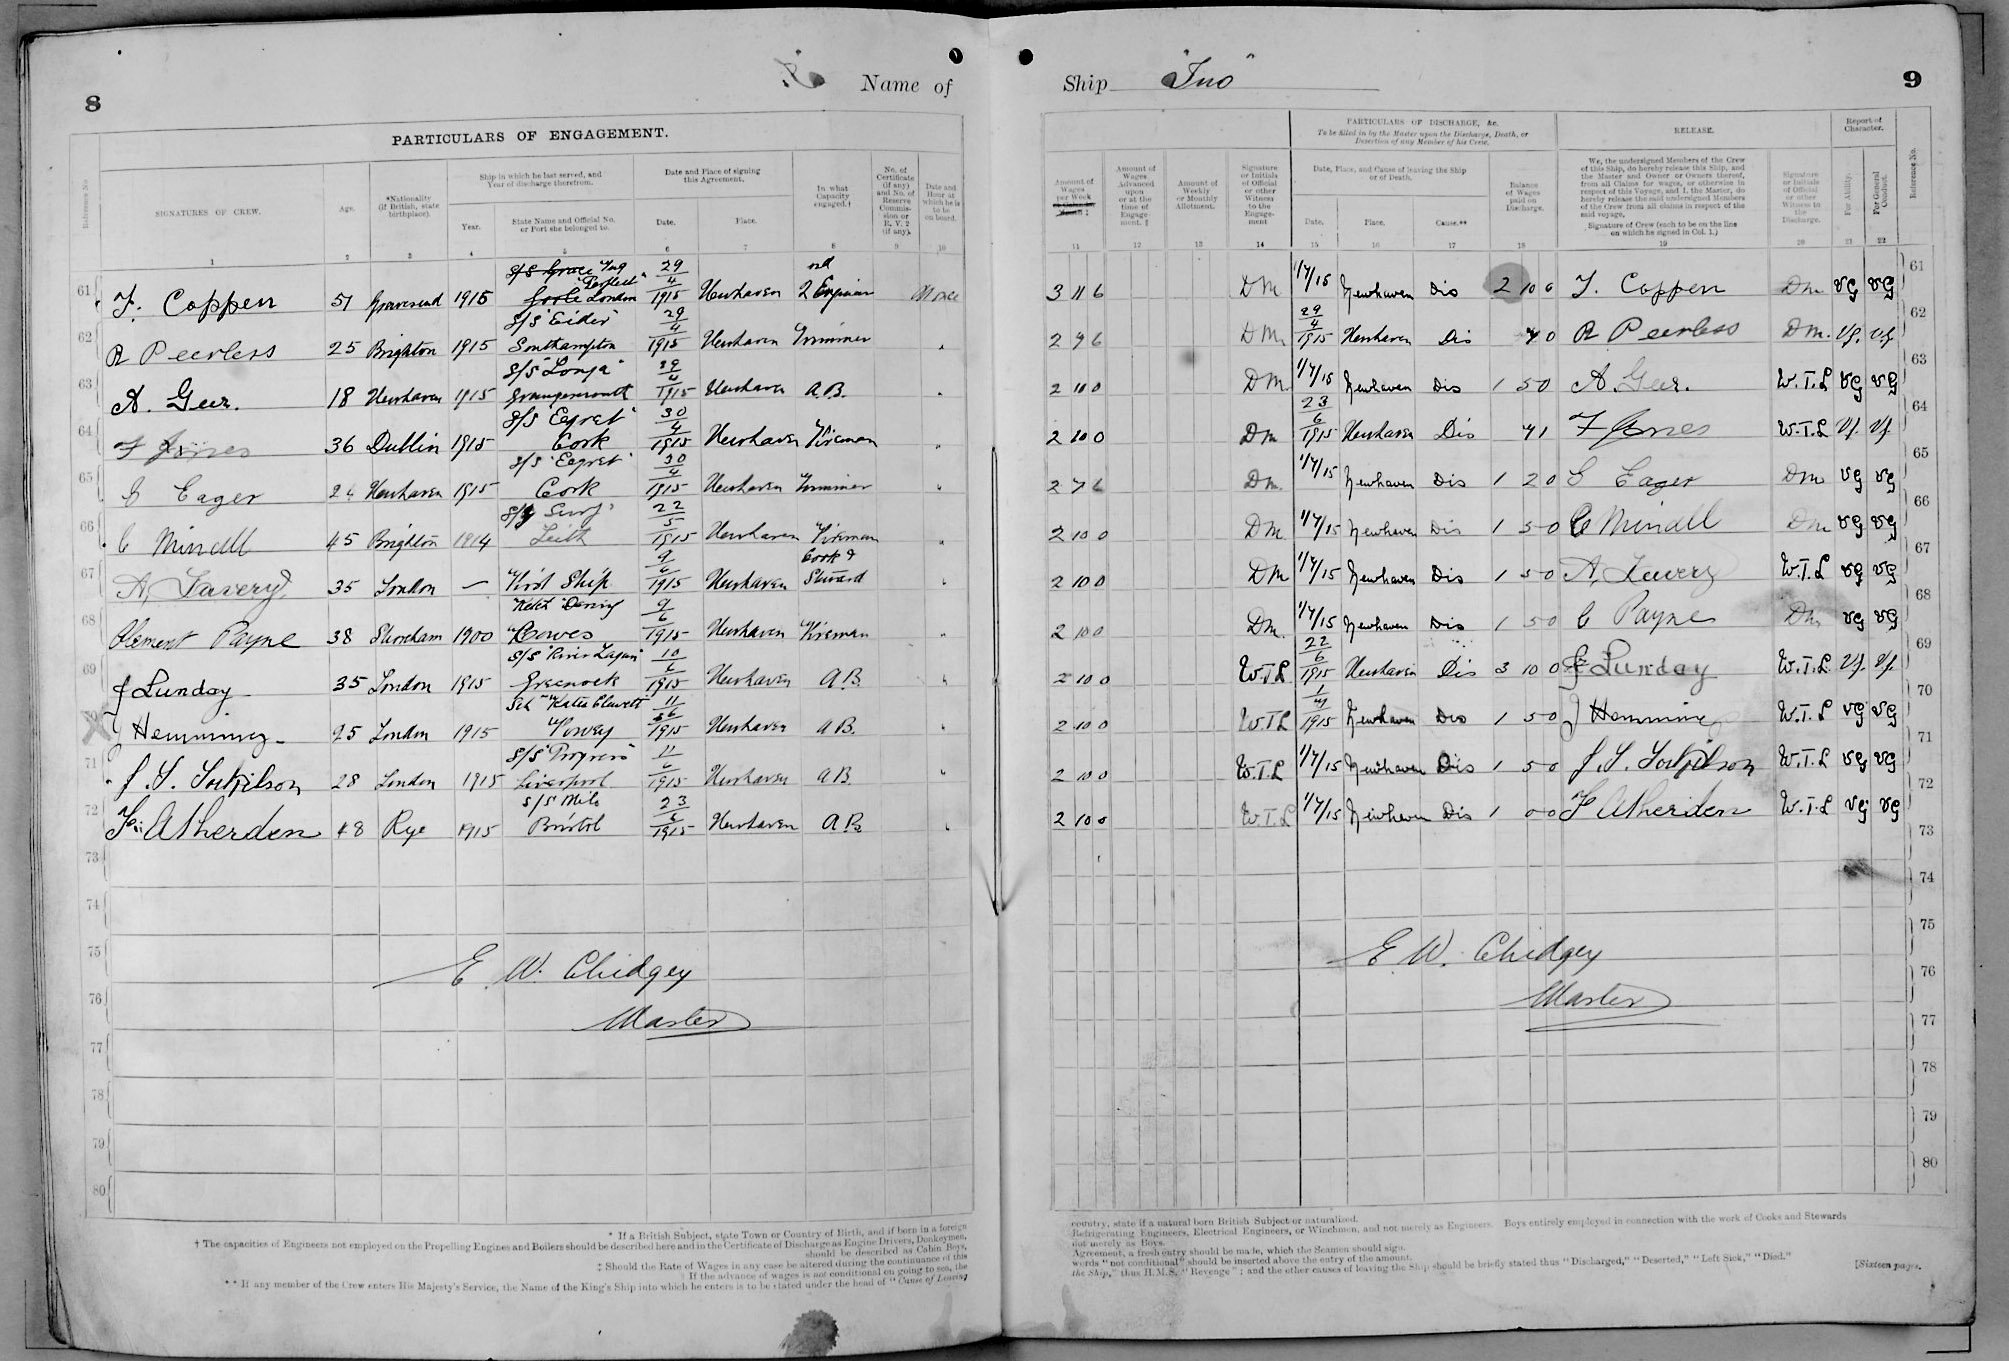 8
Name of
PARTICULARS OF ENGAGEMENT.
Reference No.
SIGNATURES OF CREW.
Age.
*Nationality (if British, state birthplace).
Ship in which he last served, and Year of discharge therefrom.
Year.
State Name and Official No. or Port she belonged to.
Date and Place of signing this Agreement.
Date.
Place.
In what Capacity engaged.†
No. of Certificate (if any) and No. of Reserve Commission or R.V.2 (if any).
Date and Hour at which he is to be on board.
1 2 3 4 5 6 7 8 9 10
61 F. Coppen 51 Gravesend 1915 London 29/4 1915 Newhaven 2 Engineer At once
62 R Peerless 25 Brighton 1915 S/S "Eider" Southampton 29/4 1915 Newhaven Trimmer "
63 A. Geer. 18 Newhaven 1915 S/S "Longa" Grangemouth 29/4 1915 Newhaven A.B. "
64 F Jones 36 Dublin 1915 S/S "Egret" Cork 30/4 1915 Newhaven Fireman "
65 G Eager 24 Newhaven 1915 S/S "Egret" Cork 30/4 1915 Newhaven Trimmer "
66 C Mindll 45 Brighton 1914 "Surf" Leith 22/5 1915 Newhaven Fireman "
67 A. Lavery 35 London — First Ship 9/6 1915 Newhaven Cook & Steward "
68 Clement Payne 38 Shoreham 1900 Ketch Cowes 9/6 1915 Newhaven Fireman "
69 J Lunday 35 London 1915 S/S "River Lagan" Greenock 10/6 1915 Newhaven A.B. "
J Hemming 25 London 1915 Sch "Katie Cluett" Fowey 11/6 1915 Newhaven A.B. "
71 J. S. 28 London 1915 S/S "Progress" Liverpool 11/6 1915 Newhaven A.B. "
72 Atherden 48 Rye 1915 S/S Mile Bristol 23/6 1915 Newhaven A.B. "
73
74
75
E. W. Chidgey
76
Master
77
78
79
80
* If a British Subject, state Town or Country of Birth, and if born in a foreign
† The capacities of Engineers not employed on the Propelling Engines and Boilers should be described here and in the Certificate of Discharge as Engine Drivers, Donkeymen,
should be described as Cabin Boys,
‡ Should the Rate of Wages in any case be altered during the continuance of this
If the advance of wages is not conditional on going to sea, the
** If any member of the Crew enters His Majesty's Service, the Name of the King's Ship into which he enters is to be stated under the head of "Cause of Leaving
Ship "Ino"
9
Amount of Wages per Week
Amount of Wages Advanced upon or at the time of Engagement.
Amount of Weekly or Monthly Allotment.
Signature or Initials of Official or other Witness to the Engagement
PARTICULARS OF DISCHARGE, &c.
To be filled in by the Master upon the Discharge, Death, or Desertion of any Member of his Crew.
Date, Place, and Cause of leaving the Ship or of Death.
Date.
Place.
Cause.**
Balance of Wages paid on Discharge.
RELEASE.
We, the undersigned Members of the Crew of this Ship, do hereby release this Ship, and the Master and Owner or Owners thereof, from all Claims for wages, or otherwise in respect of this Voyage, and I, the Master, do hereby release the said undersigned Members of the Crew from all claims in respect of the said voyage.
Signature of Crew (each to be on the line on which he signed in Col. 1.)
Signature or Initials of Official or other Witness to the Discharge.
Report of Character.
For Ability.
For General Conduct.
Reference No.
11 12 13 14 15 16 17 18 19 20 21 22
3 11 6 DM 1/7/15 Newhaven Dis 2 10 6 F. Coppen DM VG VG 61
2 7 6 DM 29/4 1915 Newhaven Dis 7 0 R Peerless DM. VG. VG 62
2 10 0 DM 1/7/15 Newhaven Dis 1 5 0 A Geer. W.T.L VG VG 63
2 10 0 DM 23/6 1915 Newhaven Dis 7 1 F Jones W.T.L VG. VG. 64
2 7 6 DM. 1/7/15 Newhaven Dis 1 2 0 G Eager DM VG VG 65
2 10 0 DM 1/7/15 Newhaven Dis 1 5 0 C Mindll DM VG VG 66
2 10 0 DM 1/7/15 Newhaven Dis 1 5 0 A. Lavery W.T.L VG VG 67
2 10 0 DM. 1/7/15 Newhaven Dis 1 5 0 C Payne DM VG VG 68
2 10 0 W.T.L 22/6 1915 Newhaven Dis 3 10 0 J Lunday W.T.L. VG. VG. 69
2 10 0 W.T.L 1/7 1915 Newhaven Dis 1 5 0 J Hemming W.T.L VG VG 70
2 10 0 W.T.L 1/7/15 Newhaven Dis 1 5 0 J. S. W.T.L VG VG 71
2 10 0 W.T.L 1/7/15 Newhaven Dis 1 0 0 Atherden W.T.L VG VG 72
73
74
75
E. W. Chidgey
76
Master
77
78
79
80
country, state if a natural born British Subject or naturalized.
Refrigerating Engineers, Electrical Engineers, or Winchmen, and not merely as Engineers. Boys entirely employed in connection with the work of Cooks and Stewards
not merely as Boys.
Agreement, a fresh entry should be made, which the Seamen should sign.
words "not conditional" should be inserted above the entry of the amount.
the Ship," thus H.M.S. "Revenge"; and the other causes of leaving the Ship should be briefly stated thus "Discharged," "Deserted," "Left Sick," "Died."
[Sixteen pages.